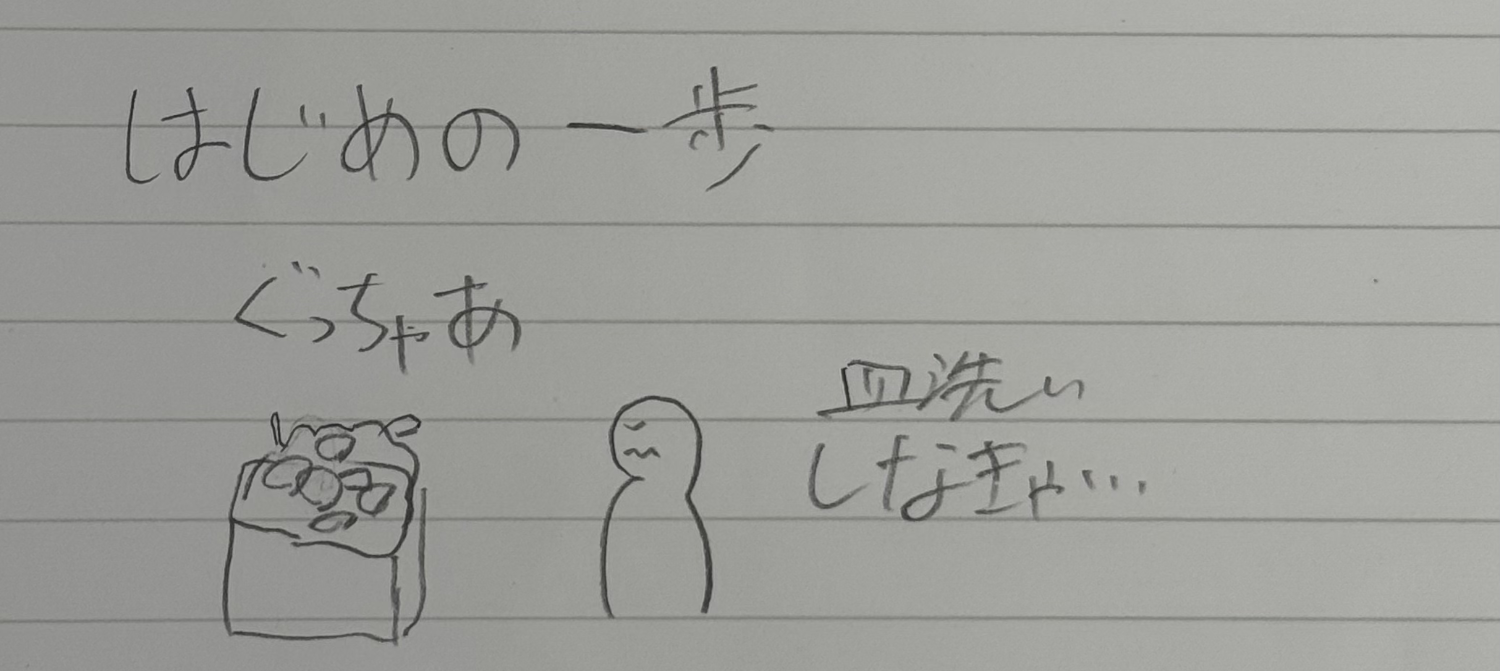 はじめの一歩
ぐっちゃあ
皿洗い
しなきゃ…